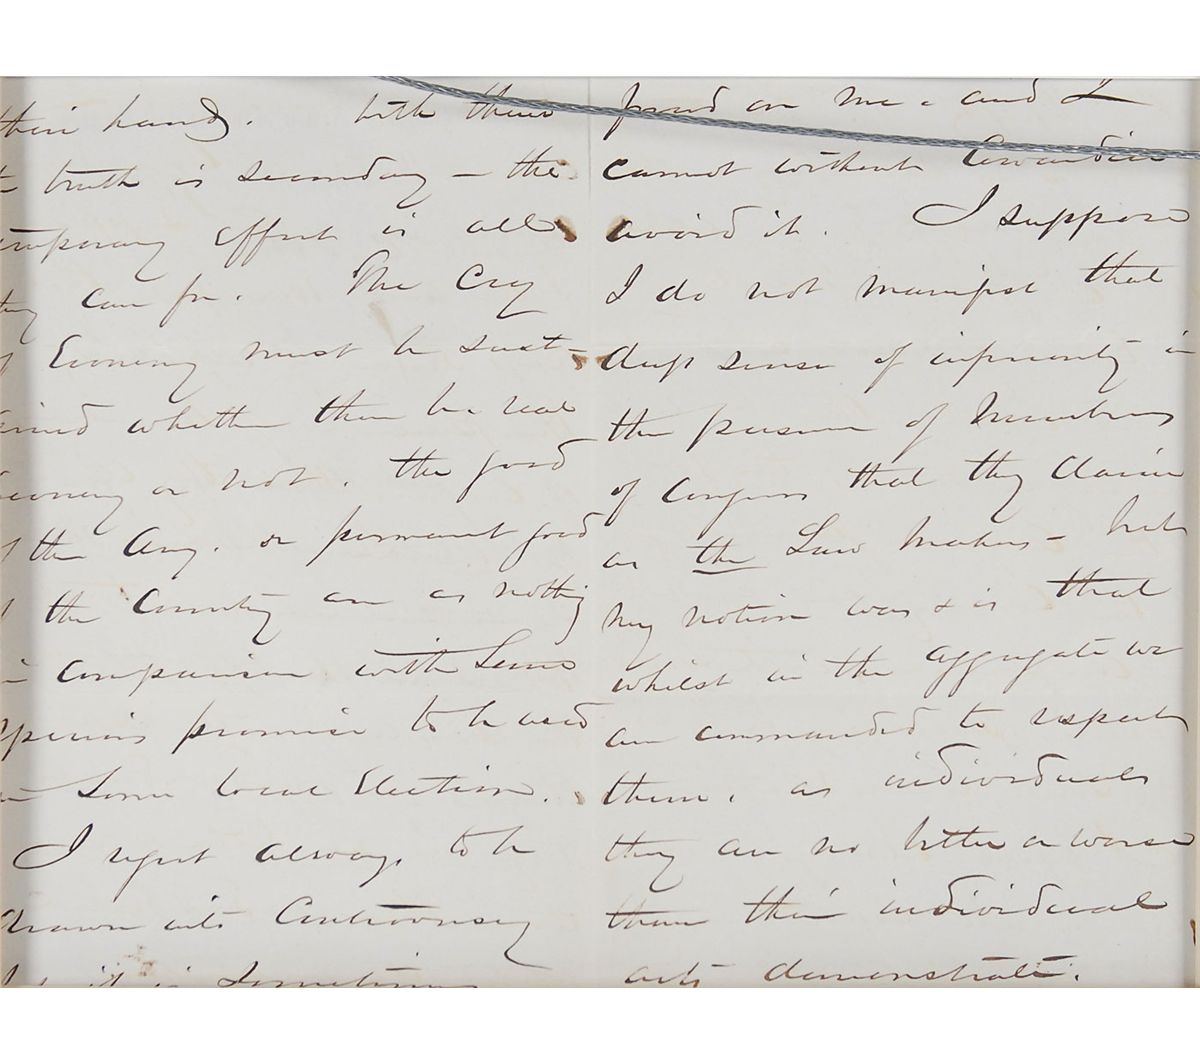 their hands. With them
truth is secondary – the
temporary effect is all
they care for. The Cry
of Economy must be sust-
ained whether there be real
Economy or not. the good
of the Army. or permanent good
of the Country are as nothing
in comparison with Some
specious promise to be used
in Some local Election.
I regret always to be
drawn into Controversy
but it is Sometimes
forced on me – and I
cannot without Cowardice
avoid it. I suppose
I do not manifest that
deep sense of inferiority in
the presence of Members
of Congress that they claim
as the Law Makers – but
my notion was & is that
whilst in the aggregate we
are commanded to respect
them, as individuals
they are no better or worse
than their individual
acts demonstrate.